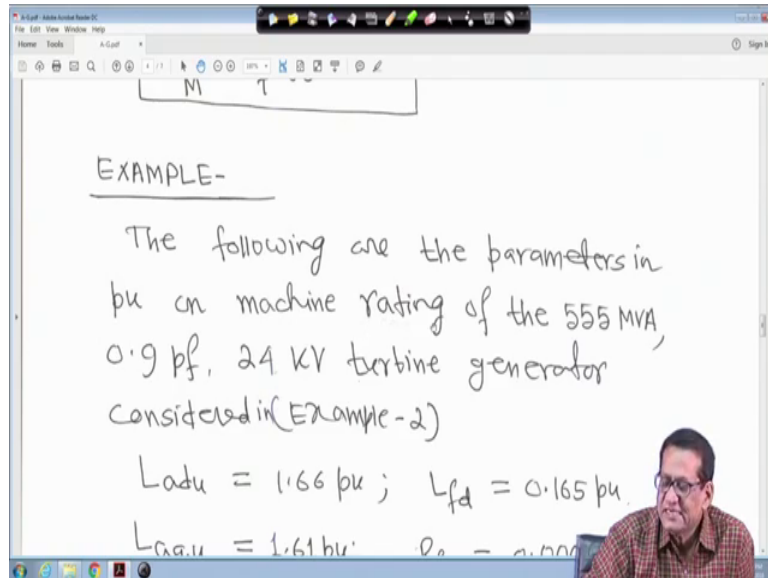 A-G.pdf - Adobe Acrobat Reader DC
File Edit View Window Help
Home Tools A-G.pdf × Sign In
4 / 7
M T
EXAMPLE-
The following are the parameters in
pu on machine rating of the 555 MVA,
0.9 pf. 24 KV turbine generator
considered in (Example-2)
Ladu = 1.66 pu ; Lfd = 0.165 pu.
Laqu = 1.61 pu.